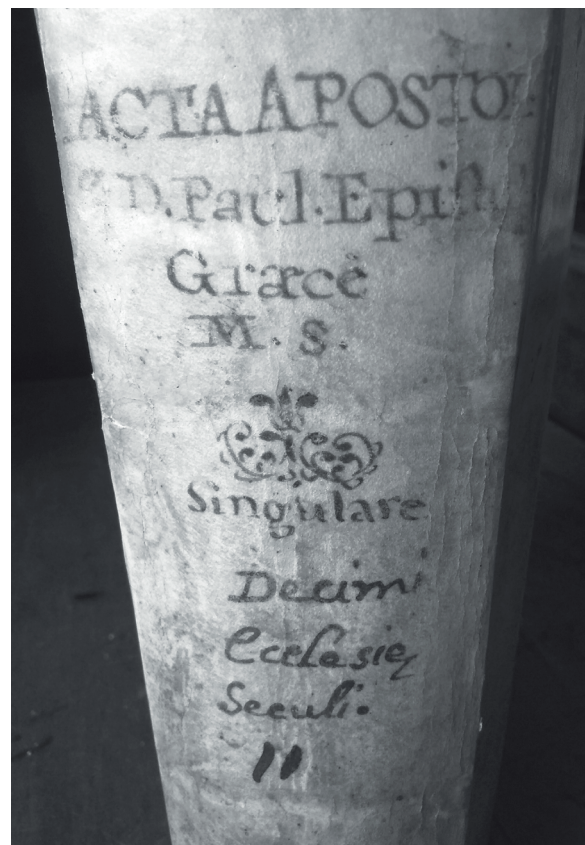 ACTA APOSTOL
& D. Paul. Epist
Græcè
M. S.
Singulare
Decimi
Ecclesię
Seculi.
11